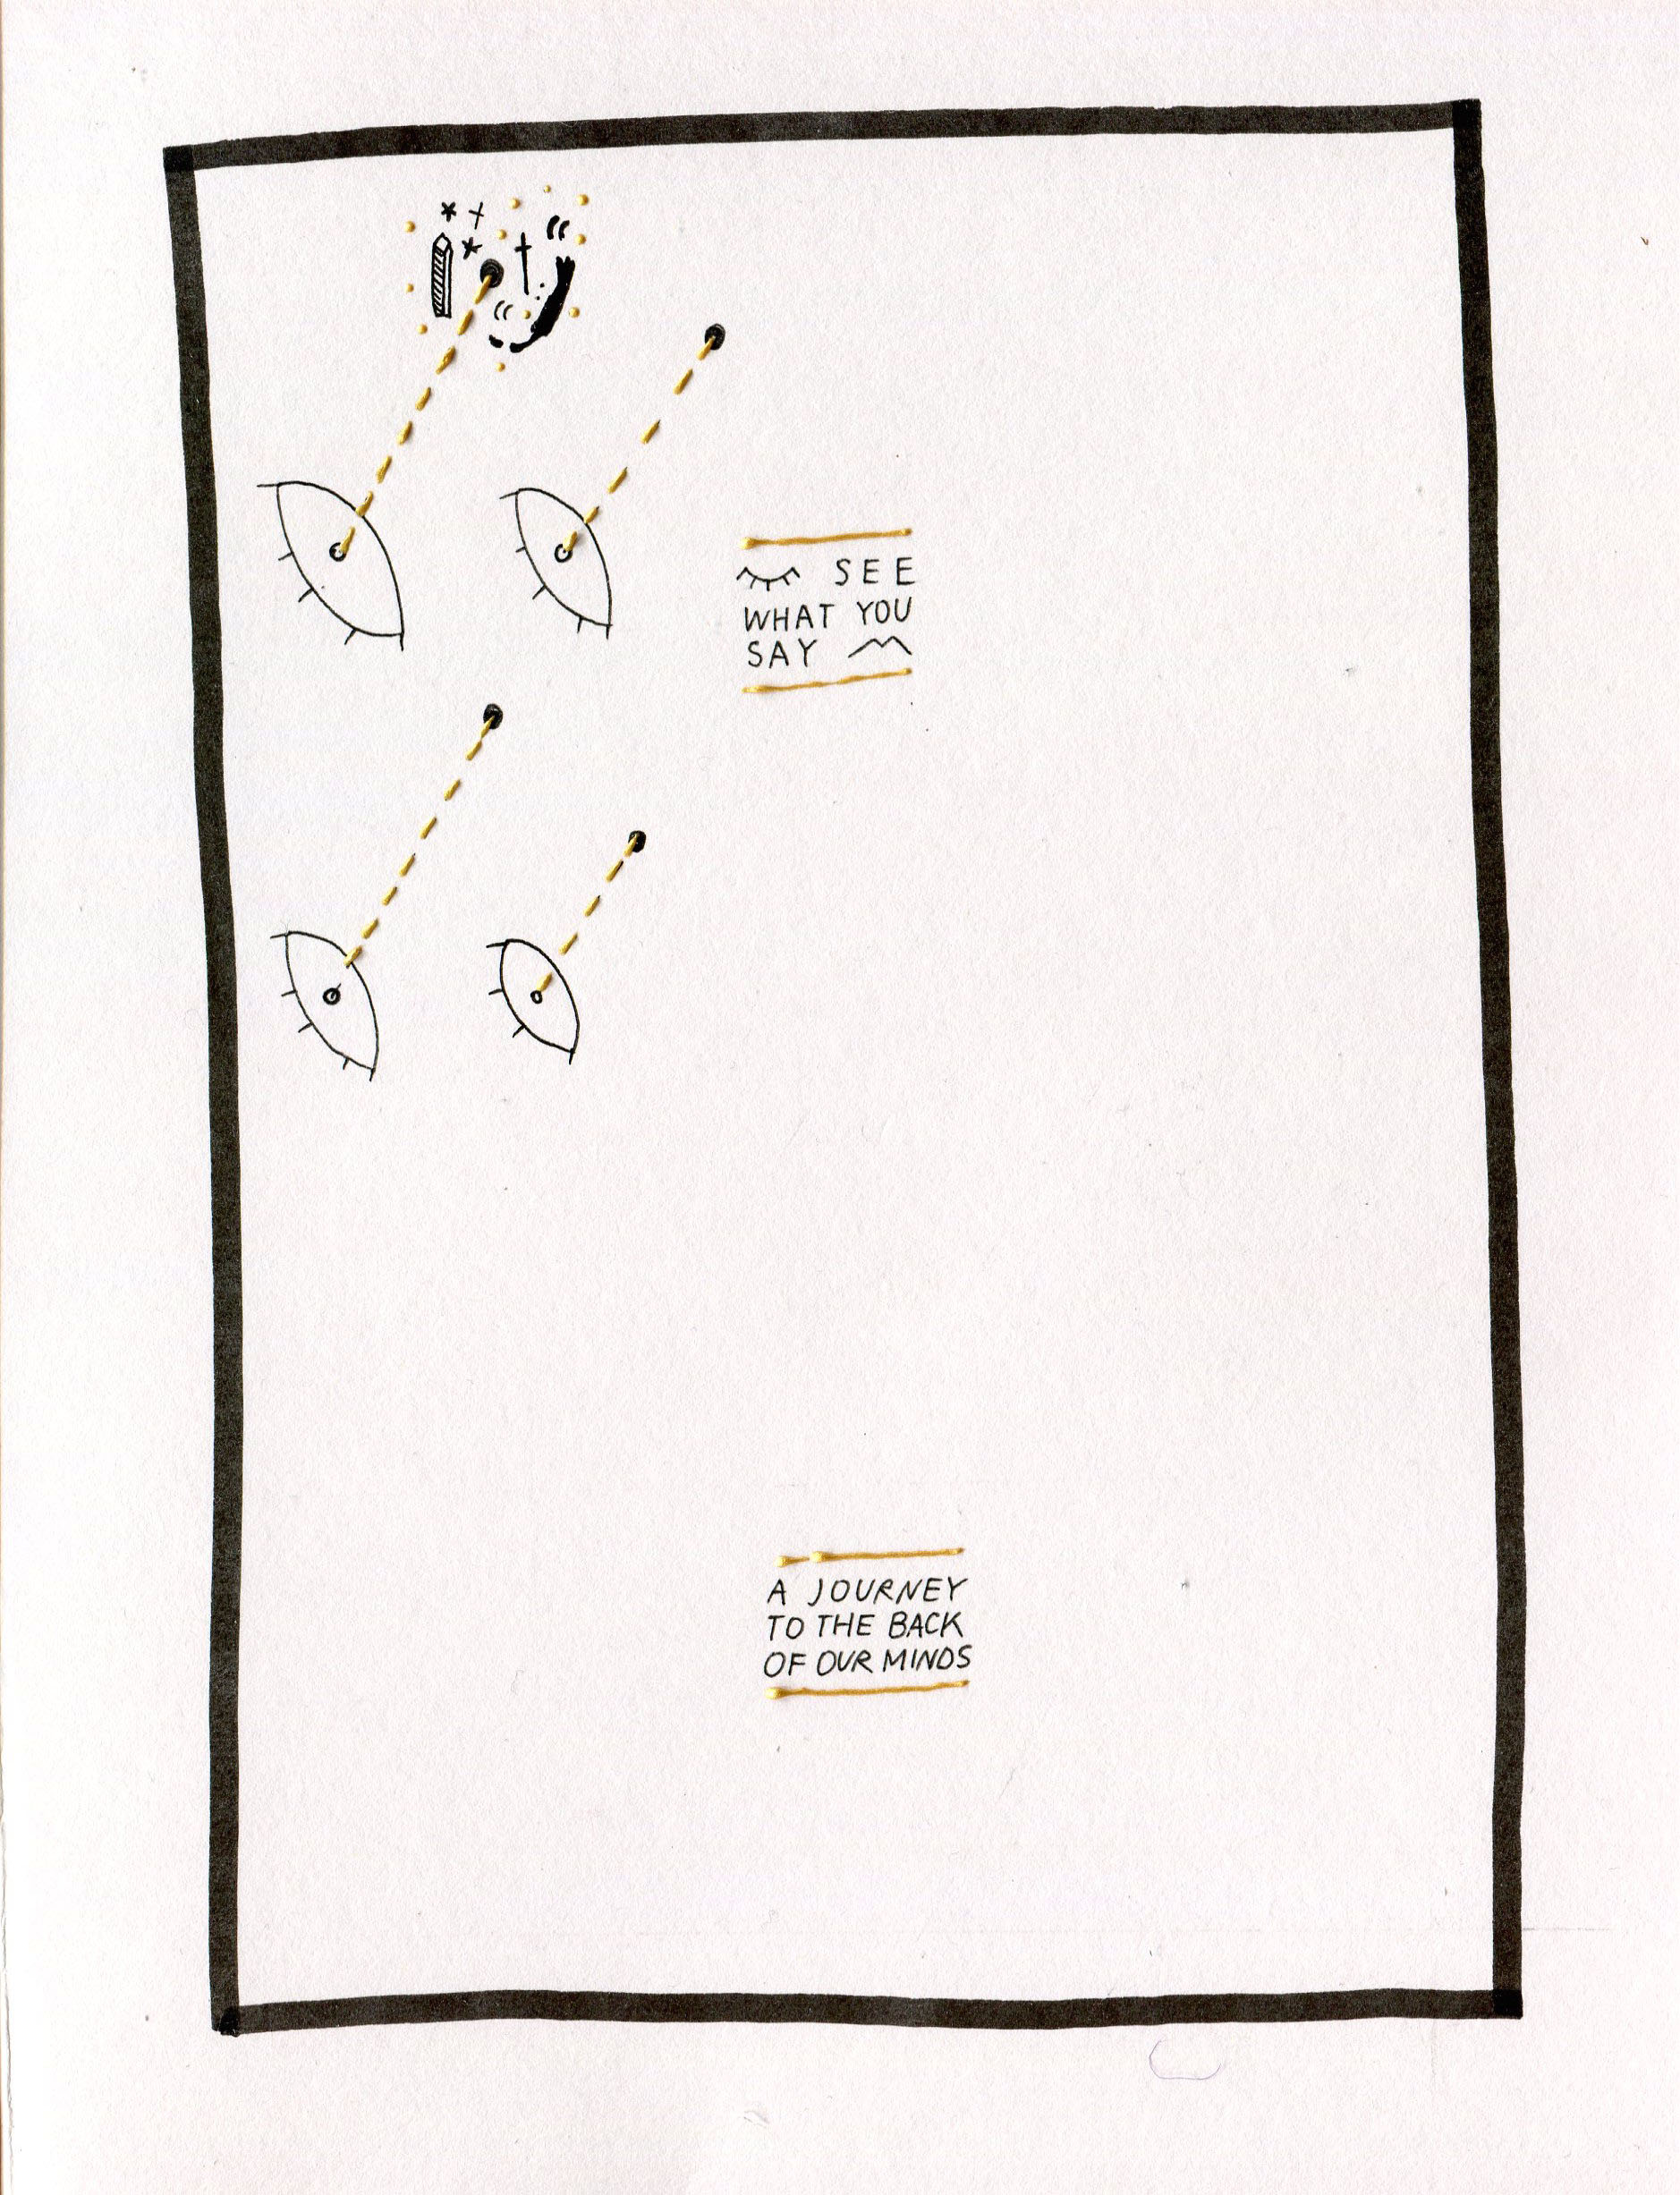 SEE
WHAT YOU
SAY
A JOURNEY
TO THE BACK
OF OUR MINDS